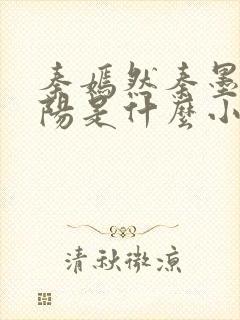 秦嫣然秦墨
陽是什麼小
清秋微涼